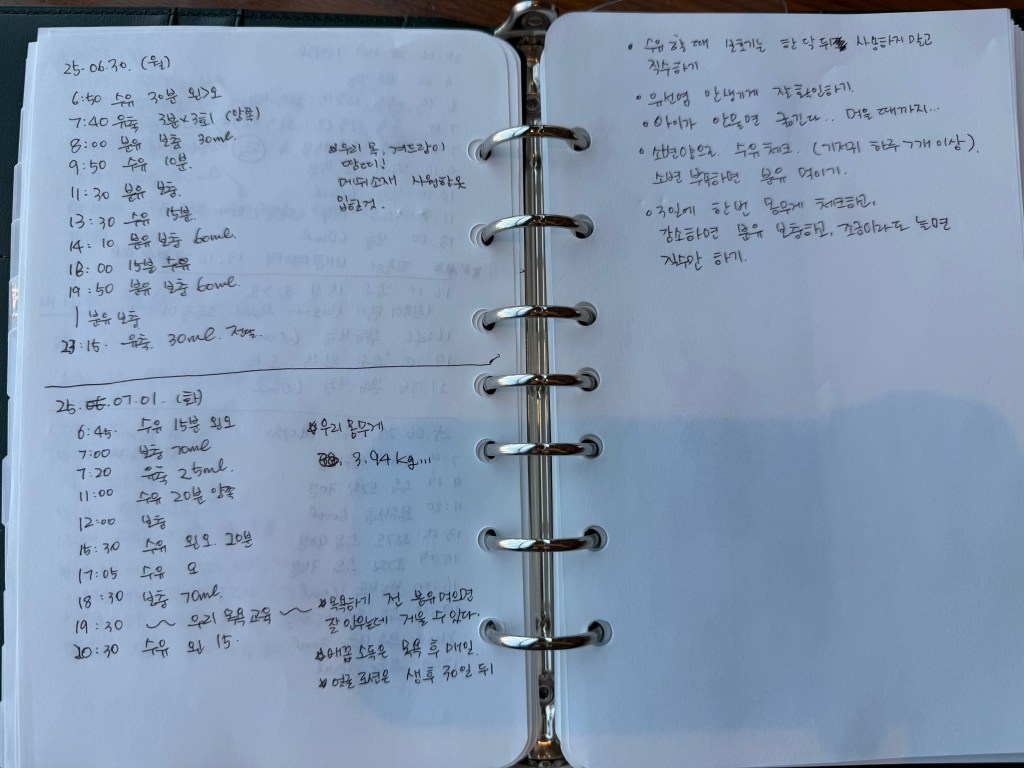 25.06.30. (월)
6:50 수유 30분 왼>오
7:40 유축 3분×3회 (양쪽)
8:00 분유 보충 30ml.
9:50 수유 10분.
11:30 분유 보충.
13:30 수유 15분.
14:10 분유 보충 60ml.
18:00 15분 수유
19:50 분유 보충 60ml.
분유 보충
23:15. 유축. 30ml.
우리 목, 겨드랑이
땀띠!
메쉬소재 사원한옷
입힐것.
25.07.01. (화)
6:45. 수유 15분 왼오
7:00 보충 70ml
7:20 유축 25ml.
11:00 수유 20분 양쪽
12:00 보충
15:30 수유 왼오 20분
17:05 수유 오
18:30 보충 70ml.
19:30 ~ 우리 목욕교육 ~
20:30 수유 왼 15.
우리 몸무게
3.94kg...
목욕하기 전 분유먹으면
잘 있는데 게울 수 있다.
배꼽소독은 목욕 후 매일.
얼굴로션은 생후 30일 뒤
• 수유 할 때 보호기는 한 달 뒤 사용하지 말고
직수하기
• 유선염 안생기게 잘 확인하기.
• 아이가 안물면 굶긴다.. 먹을 때까지...
• 소변양으로 수유체크. (기저귀 하루 7개 이상).
소변 부족하면 분유 먹이기.
• 3일에 한번 몸무게 체크하고,
감소하면 분유 보충하고, 조금이라도 늘면
직수만 하기.